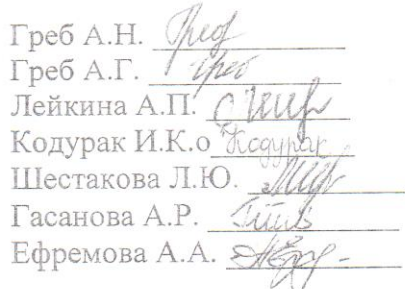 Греб А.Н. Греб
Греб А.Г. Греб
Лейкина А.П.
Кодурак И.К.о Кодурак
Шестакова Л.Ю.
Гасанова А.Р.
Ефремова А.А.